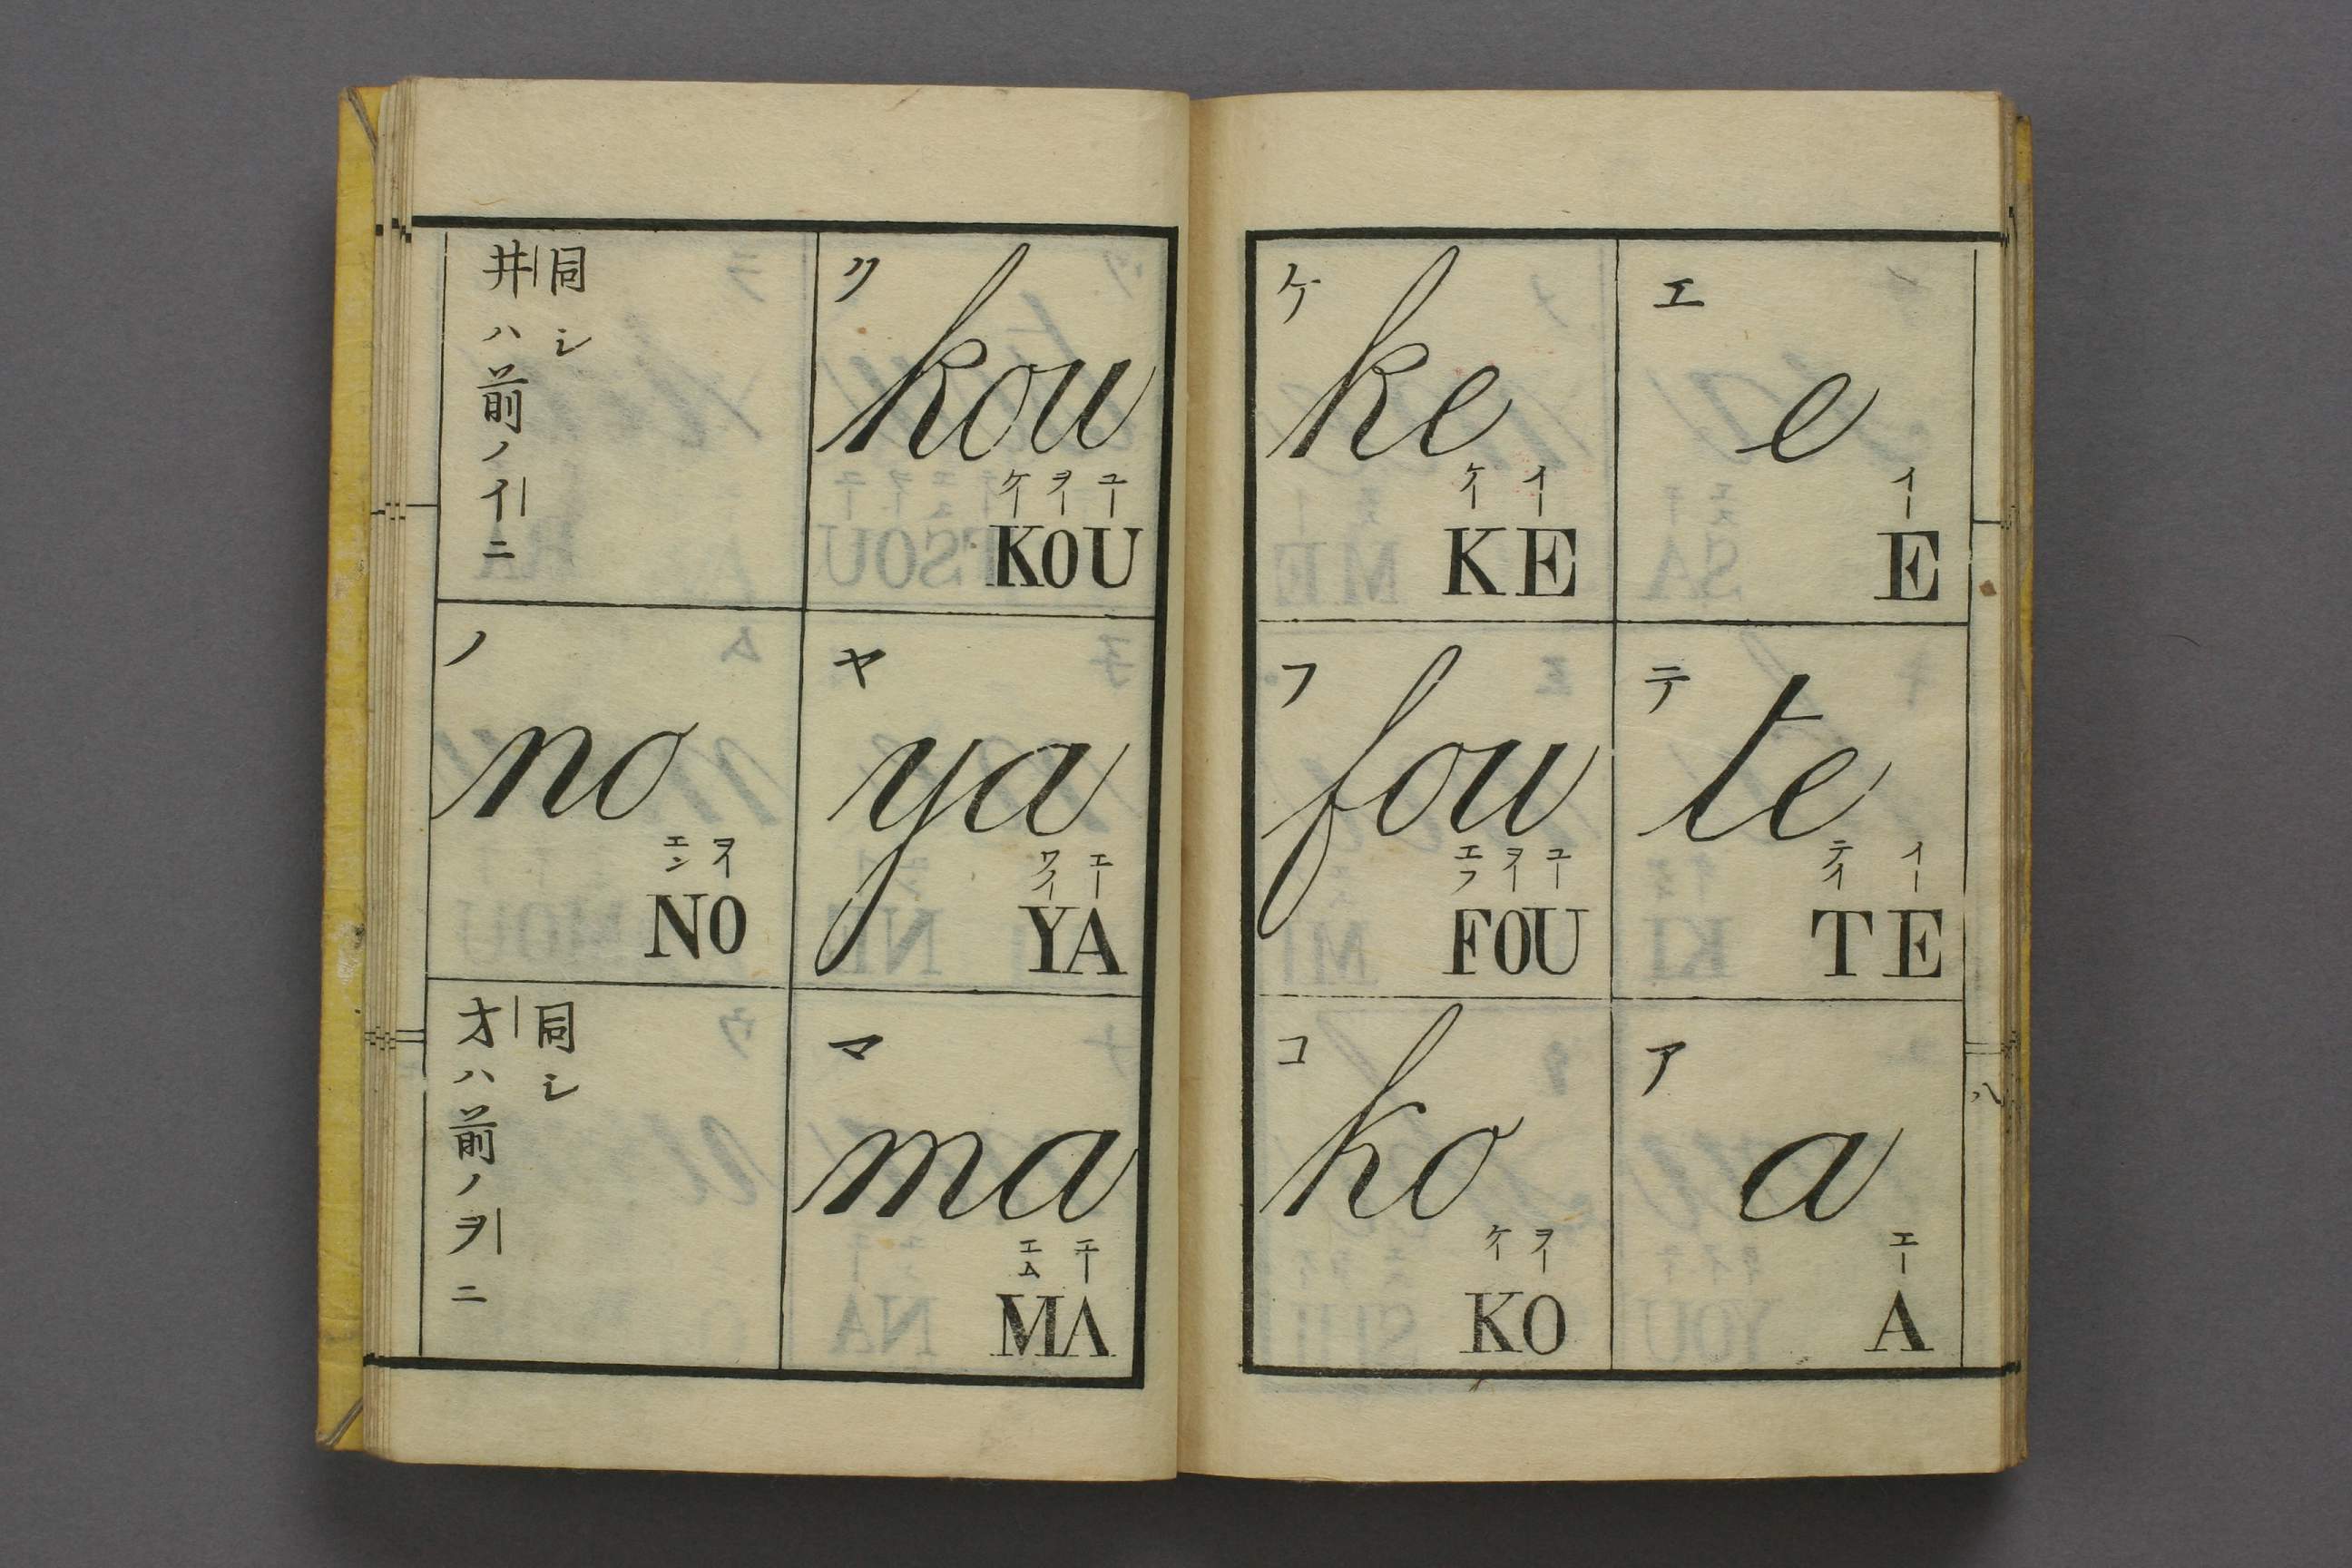 井ハ前ノイニ
同シ
ノ
no
エン ヲイ
NO
オハ前ノヲニ
同シ
ク
kou
ケイ ヲイ ユー
KOU
ヤ
ya
ワイ エー
YA
マ
ma
エム エー
MA
ケ
ke
ケイ イー
KE
フ
fou
エフ ヲイ ユー
FOU
コ
ko
ケイ ヲイ
KO
エ
e
イー
E
テ
te
テイ イー
TE
ア
a
エー
A
八